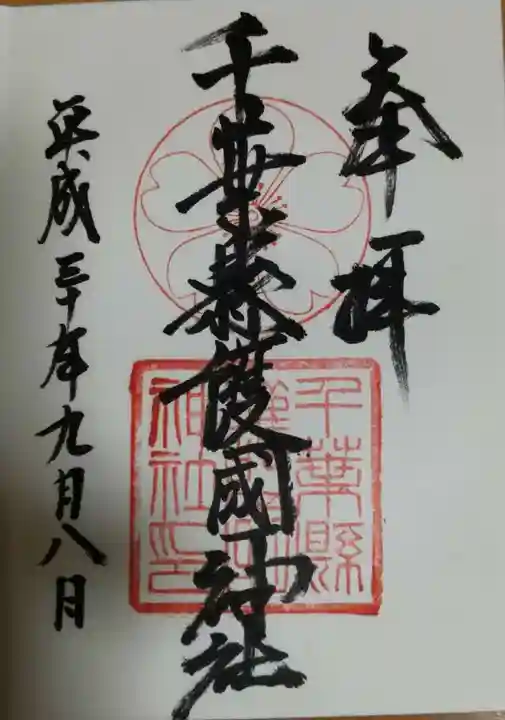 奉拝
千葉縣護國神社
千葉縣
護國
神社印
平成三十年九月八日